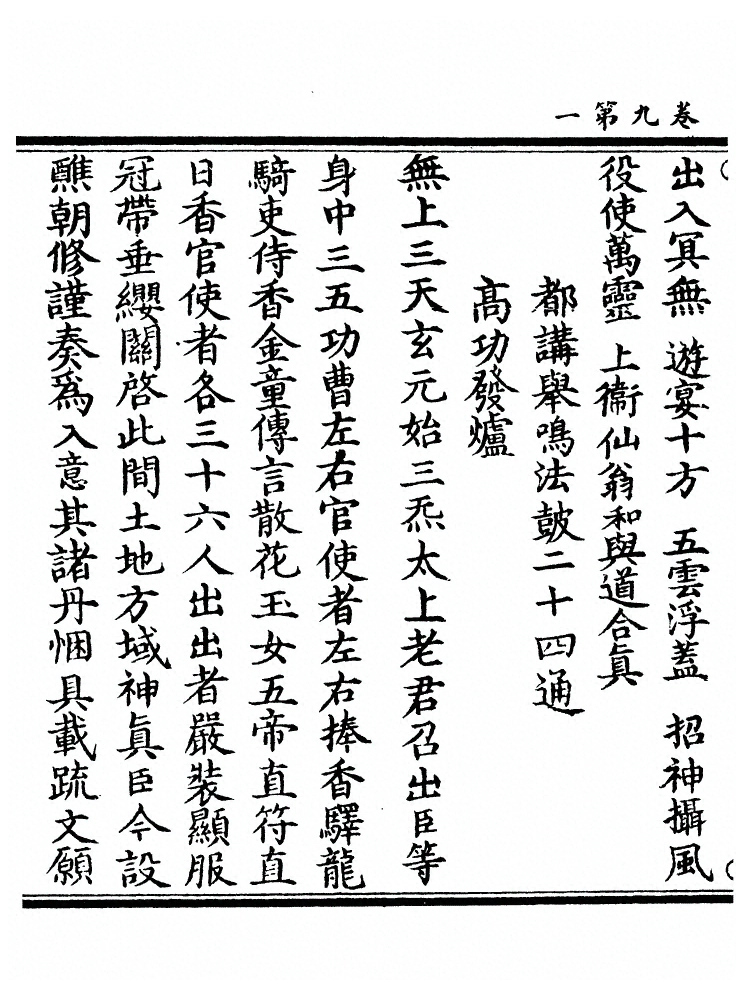 卷九第一
出入冥無　遊宴十方　五雲浮蓋　招神攝風
役使萬靈　上衞仙翁和與道合眞
都講舉鳴法鼓二十四通
高功發爐
無上三天玄元始三炁太上老君召出臣等
身中三五功曹左右官使者左右捧香驛龍
騎吏侍香金童傳言散花玉女五帝直符直
日香官使者各三十六人出出者嚴裝顯服
冠帶垂纓關啓此間土地方域神眞臣今設
醮朝修謹奏爲入意其諸丹悃具載疏文願